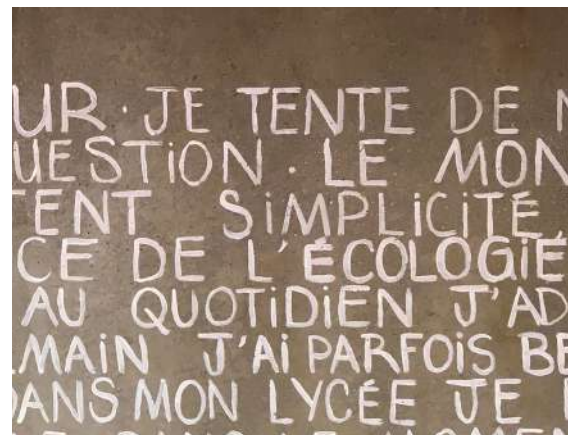 UR · JE TENTE DE
UESTION · LE MON
TENT SiMPLiCiTÉ,
CE DE L'ÉCOLOGiE
AU QUOTiDiEN J'AD
MAiN J'Ai PARFOiS BE
DANS MON LYCÉE JE